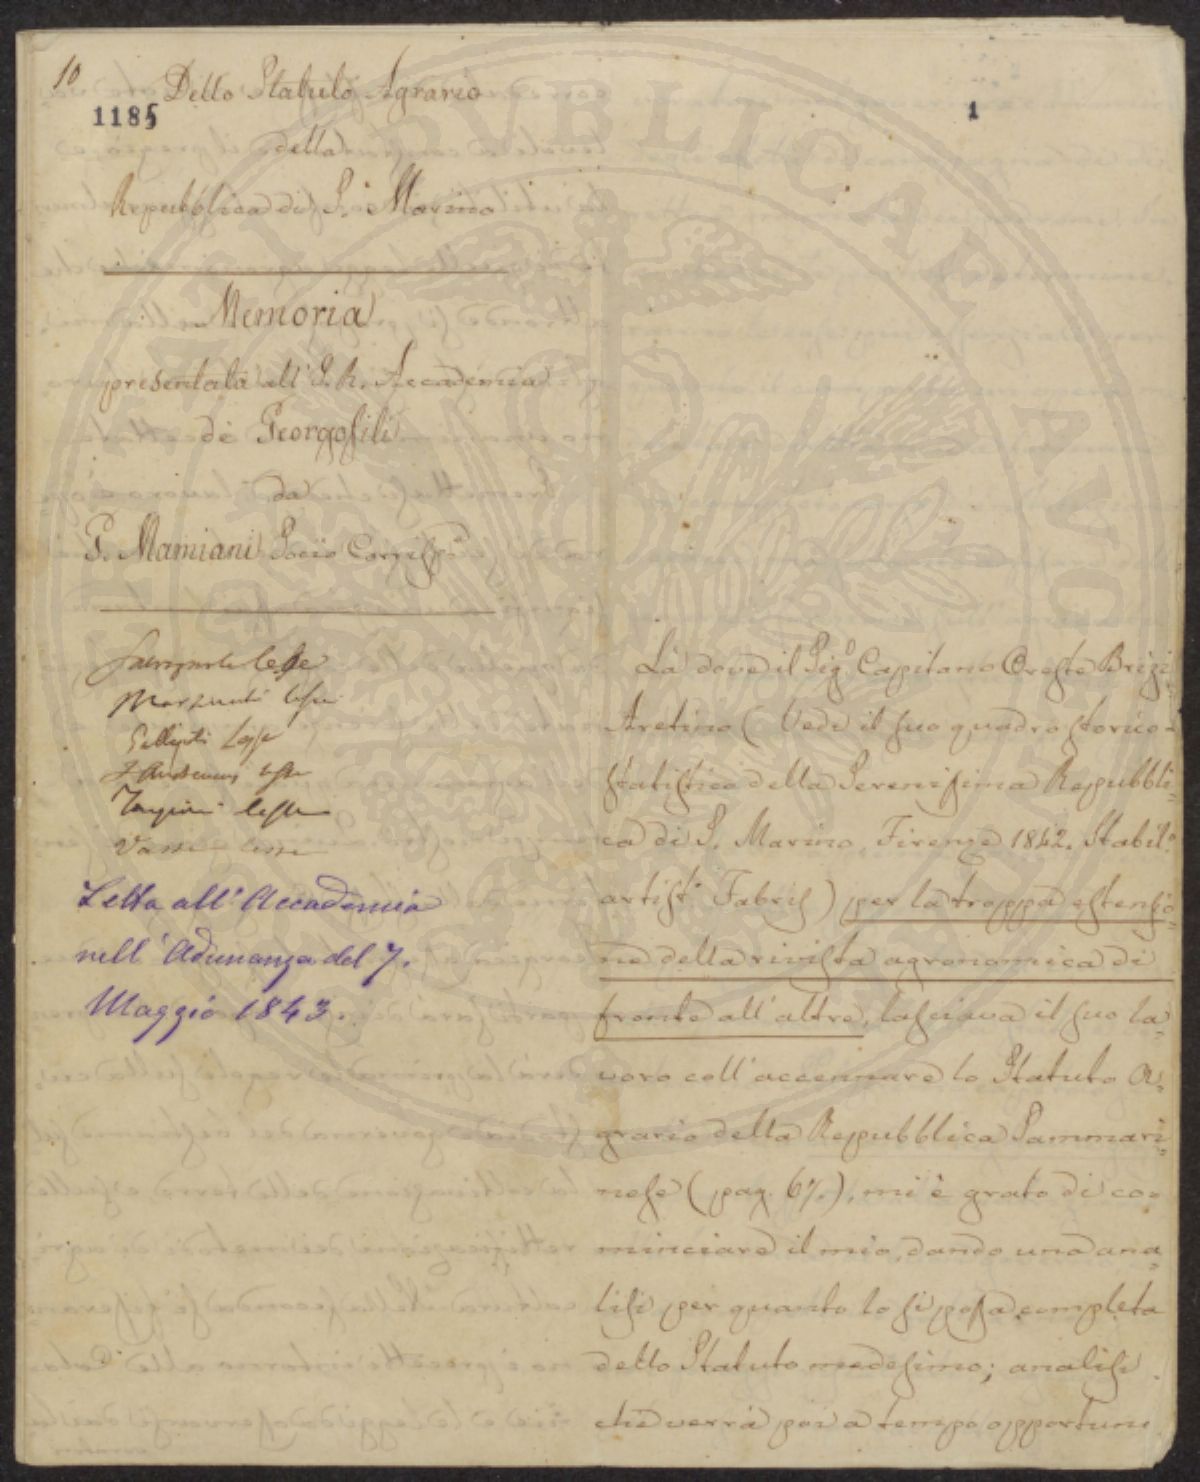 10
1185
1
Dello Statuto Agrario
della
Repubblica di S. Marino
Memoria
presentata all' I. R. Accademia
dè Georgofili
da
G. Mamiani Socio Corrisp.e
lesse
lesse
lesse
lesse
lesse
Letta all' Accademia
nell' Adunanza del 7.
Maggio 1843.
Là dove il Sig.r Capitano Oreste Brizi
Aretino (Vedi il suo quadro storico=
statistico della Serenissima Repubbli=
ca di S. Marino, Firenze 1842. Stabil.o
artist.o Fabris) per la troppa estensio=
ne della rivista agronomica di
fronte all' altre, lasciava il suo la=
voro coll' accennare lo Statuto A=
grario della Repubblica Sammari=
nese (pag. 67.), mi è grato di co=
minciare il mio, dando una ana=
lisi per quanto lo si possa completa
dello Statuto medesimo; analisi
che verrà poi a tempo opportuno